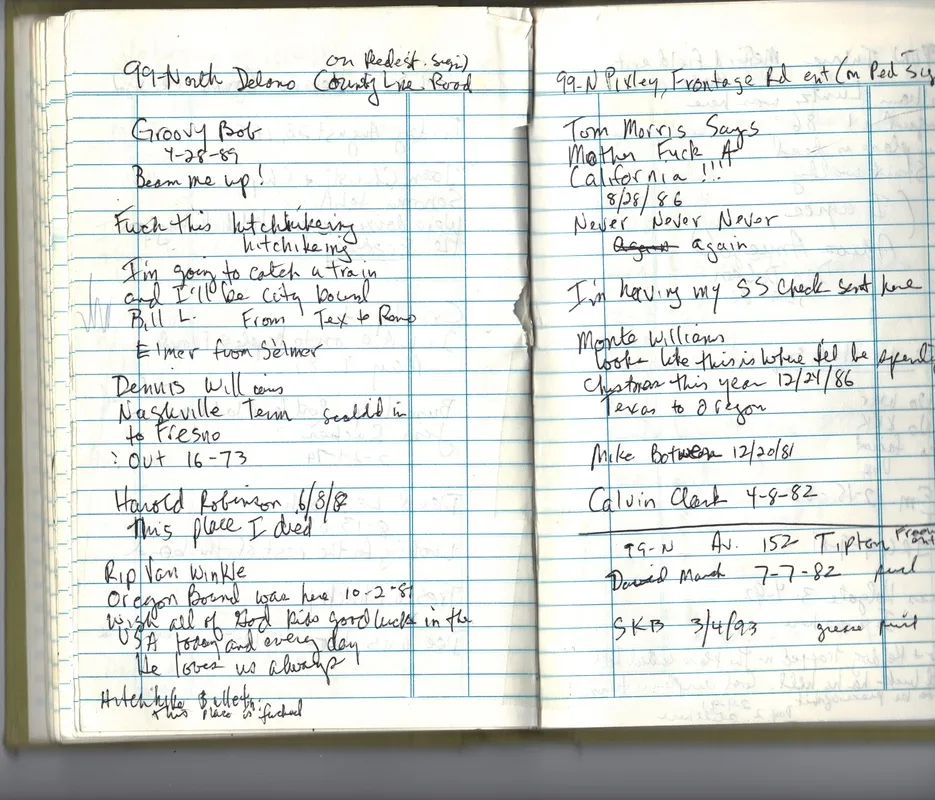 on Pedest. Sign)
99-North Delano (County Line Road
Groovy Bob
4-28-89
Beam me up!
Fuck this hitchhikeing
hitchikeing
I'm going to catch a train
and I'll be City bound
Bill L. From Tex to Reno
Elmer from Selmer
Dennis Williams
Nashville Tenn in
to Fresno
: Out 16-73
Harold Robinson 6/8/82
This place I died
Rip Van Winkle
Oregon Bound was here 10-2-81
Wish all of God Kids good luck in the
USA today and every day
He loves us always
Hitchhike
this place is fucked
99-N Pixley, Frontage Rd ent (on Ped Sig
Tom Morris Says
Mother Fuck A
California !!!
8/28/86
Never Never Never
Again again
I'm having my SS Check sent here
Monte Williams
looks like this is where I'll be spendi
Christmas this year 12/24/86
Texas to Oregon
Mike 12/20/81
Calvin Clark 4-8-82
99-N Av. 152 Tipton
David March 7-7-82
SKB 3/4/93 grease